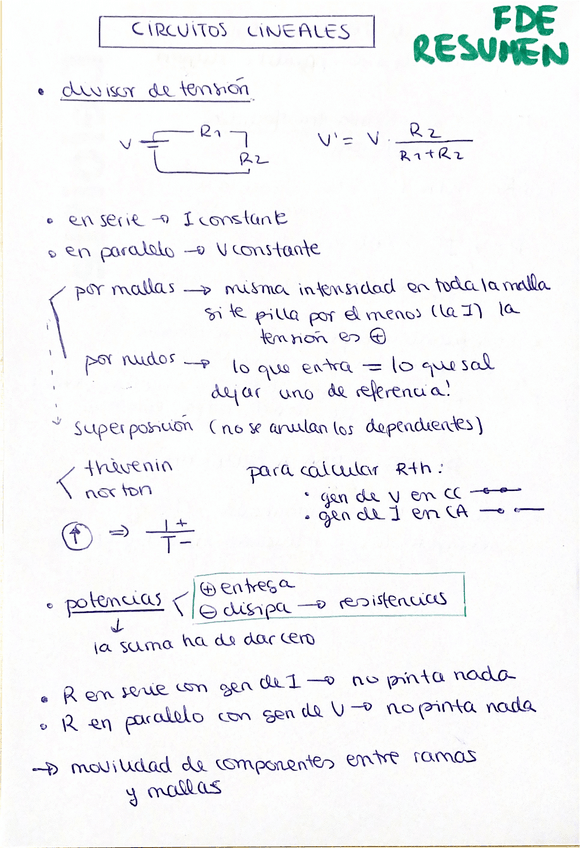 FDE
RESUMEN
CIRCUITOS LINEALES
• divisor de tensión
V R1 R2
V' = V · R2 / R1+R2
• en serie → I constante
• en paralelo → V constante
por mallas → misma intensidad en toda la malla
si te pilla por el menos (la I) la
tensión es ⊕
por nudos → lo que entra = lo que sal
dejar uno de referencia!
superposición (no se anulan los dependientes)
thévenin
norton
para calcular Rth:
• gen de V en CC
• gen de I en CA
↑ ⇒ + −
• potencias
⊕ entrega
⊖ disipa → resistencias
↓
la suma ha de dar cero
• R en serie con gen de I → no pinta nada
• R en paralelo con gen de V → no pinta nada
→ movilidad de componentes entre ramas
y mallas